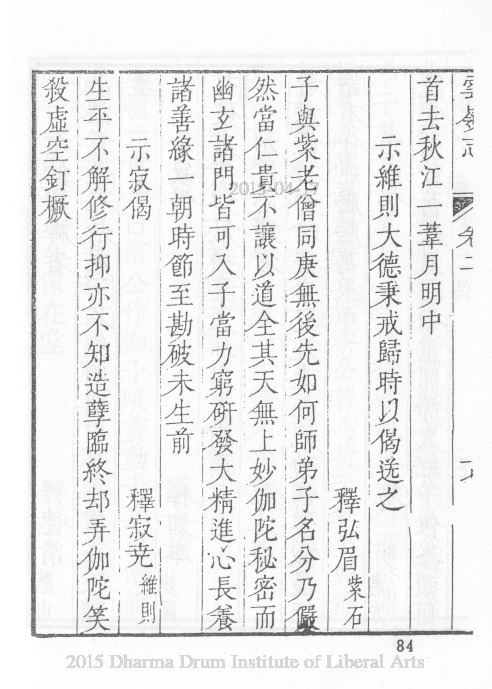 雲嶺志 卷二
首去秋江一葦月明中
示維則大德秉戒歸時以偈送之
釋弘眉紫石
子與紫老僧同庚無後先如何師弟子名分乃儼
然當仁貴不讓以道全其天無上妙伽陀秘密而
幽玄諸門皆可入子當力窮研發大精進心長養
諸善緣一朝時節至勘破未生前
示寂偈
釋寂尭維則
生平不解修行抑亦不知造孽臨終却弄伽陀笑
殺虛空釘橛
84
2015 Dharma Drum Institute of Liberal Arts